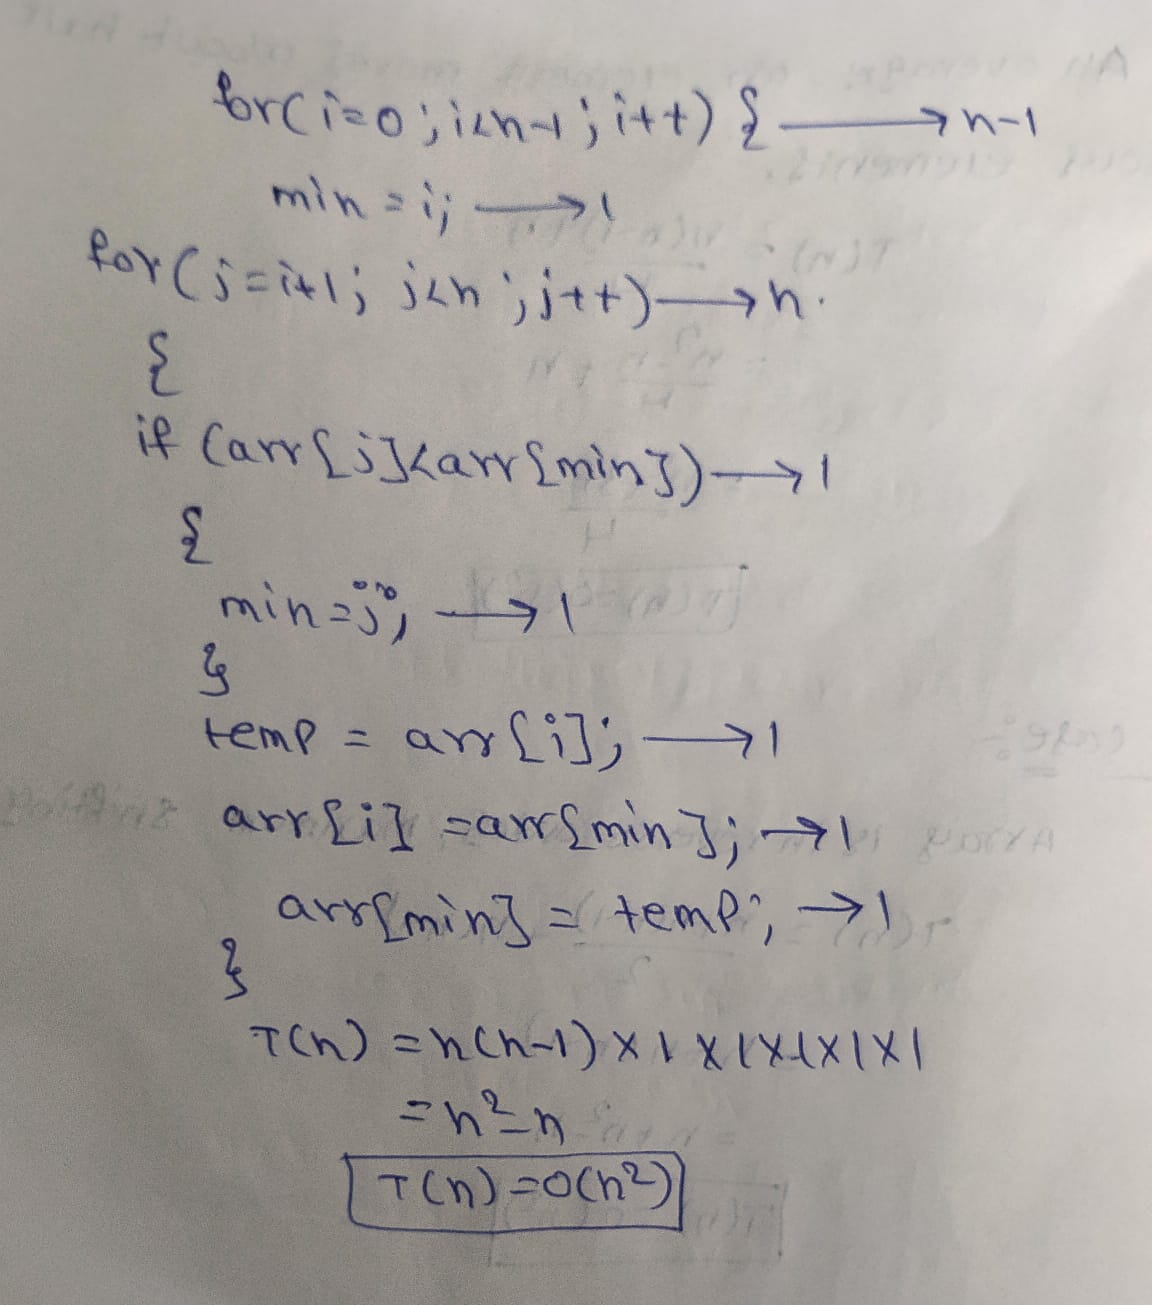 for(i=0;i<n-1;i++){ → n-1
min=i; → 1
for(j=i+1; j<n;j++) → n.
{
if (arr[j]<arr[min]) → 1
{
min=j; → 1
}
temp = arr[i]; → 1
arr[i] =arr[min]; → 1
arr[min] = temp; → 1
}
T(n) = n(n-1) x 1 x 1x1x1x1
= n²-n
T(n) = O(n²)